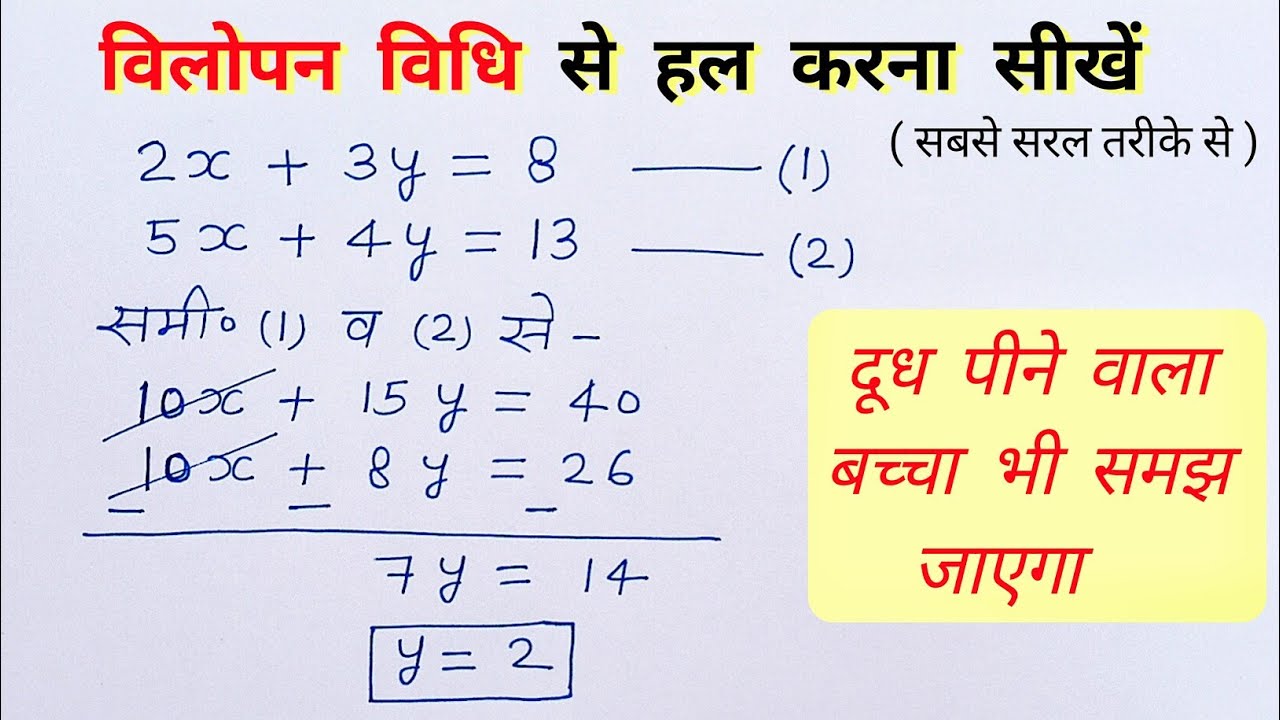 विलोपन विधि से हल करना सीखें
( सबसे सरल तरीके से )
2x + 3y = 8 —— (1)
5x + 4y = 13 —— (2)
समी॰ (1) व (2) से -
10x + 15y = 40
10x + 8y = 26
− − −
7y = 14
y = 2
दूध पीने वाला
बच्चा भी समझ
जाएगा